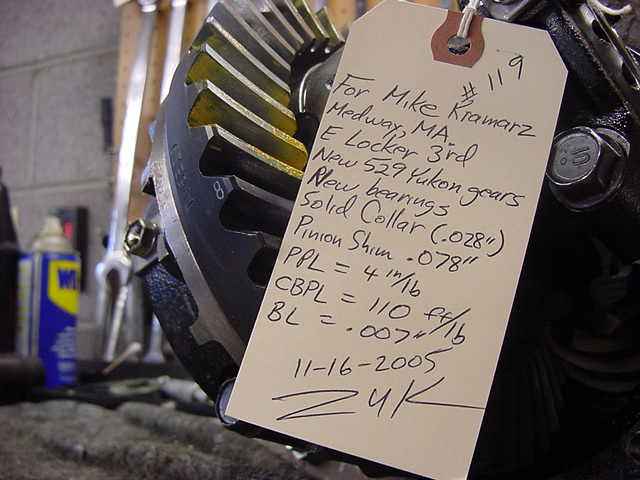 #119
For Mike Kramarz
Medway, MA.
E Locker 3rd
New 529 Yukon gears
New bearings
Solid Collar (.028")
Pinion Shim .078"
PPL = 4 in/lb
CBPL = 110 ft/lb
BL = .007"
11-16-2005
ZUK
8
WD